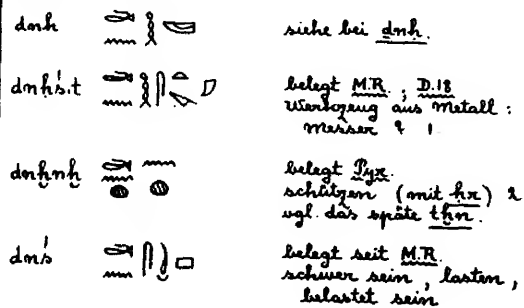 dnḥ siehe bei dnḥ.
dnḥś.t belegt M.R. ; D.18
Werkzeug aus Metall :
Messer ? 1
dnḫnḫ belegt Pyr.
schützen (mit ḥr) 2
vgl. das späte tḫn.
dnś belegt seit M.R.
schwer sein, lasten,
belastet sein